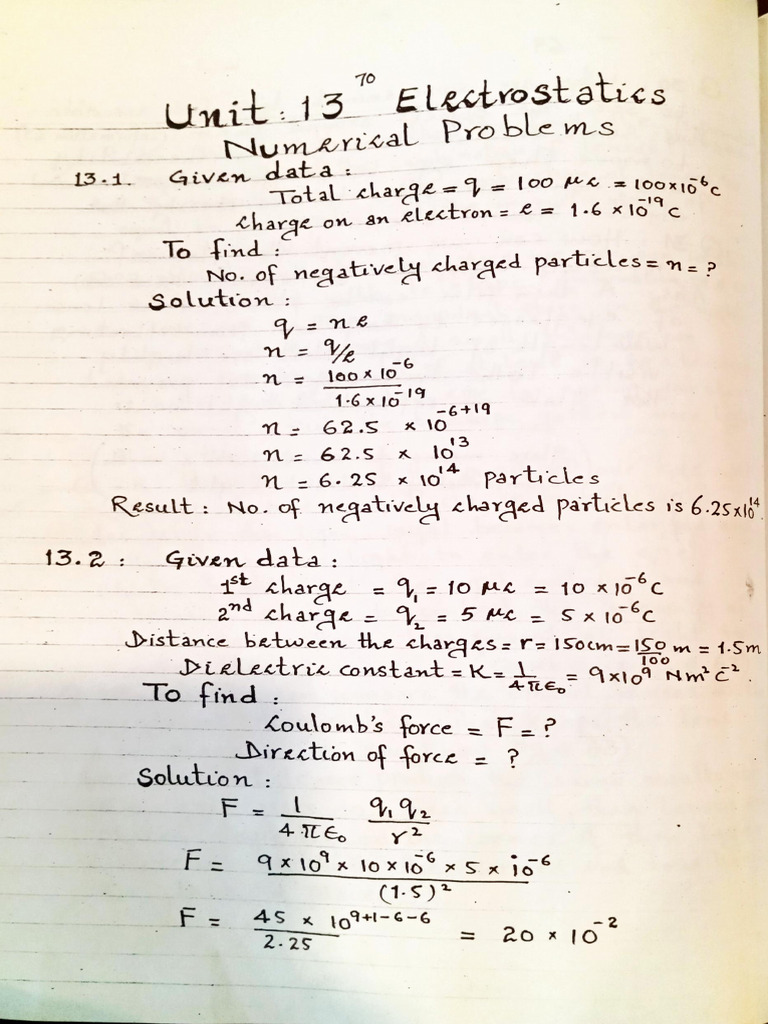 70
Unit: 13 Electrostatics
Numerical Problems
13.1. Given data:
Total charge = q = 100 μc = 100×10⁻⁶c
Charge on an electron = e = 1.6 ×10⁻¹⁹c
To find:
No. of negatively charged particles = n = ?
Solution:
q = ne
n = q/e
n = 100 × 10⁻⁶ / 1.6 × 10⁻¹⁹
n = 62.5 × 10⁻⁶⁺¹⁹
n = 62.5 × 10¹³
n = 6.25 × 10¹⁴ particles
Result: No. of negatively charged particles is 6.25×10¹⁴.
13.2: Given data:
1st charge = q₁ = 10 μc = 10 ×10⁻⁶C
2nd charge = q₂ = 5 μc = 5 × 10⁻⁶C
Distance between the charges = r = 150cm = 150/100 m = 1.5m
Dielectric constant = K = 1/4πε₀ = 9×10⁹ Nm²C⁻².
To find:
Coulomb's force = F = ?
Direction of force = ?
Solution:
F = 1/4πε₀ q₁q₂/r²
F = 9 × 10⁹ × 10 × 10⁻⁶ × 5 × 10⁻⁶ / (1.5)²
F = 45 × 10⁹⁺¹⁻⁶⁻⁶ / 2.25 = 20 × 10⁻²